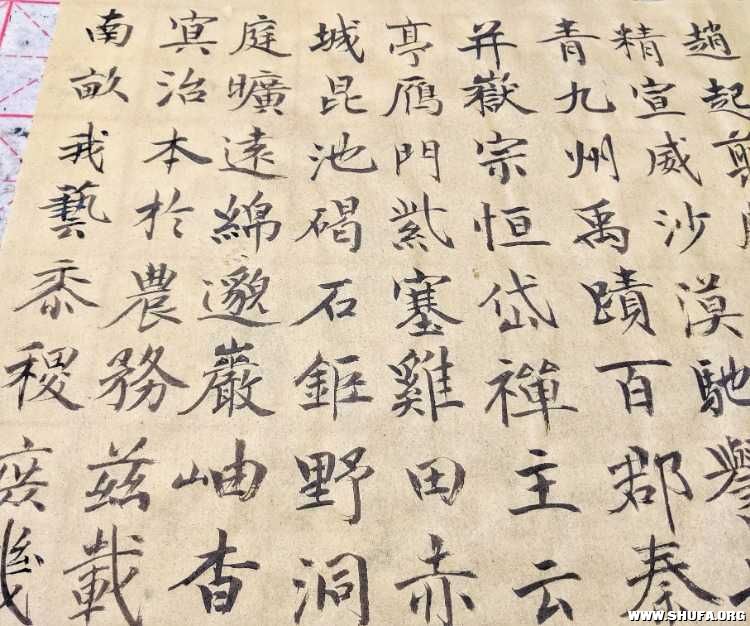 趙起翦
精宣威沙漠馳譽
青九州禹蹟百郡秦
并嶽宗恒岱禪主云
亭鴈門紫塞雞田赤
城昆池碣石鉅野洞
庭曠遠綿邈巖岫杳
冥治本於農務茲載
南畝我藝黍稷庶幾
WWW.SHUFA.ORG